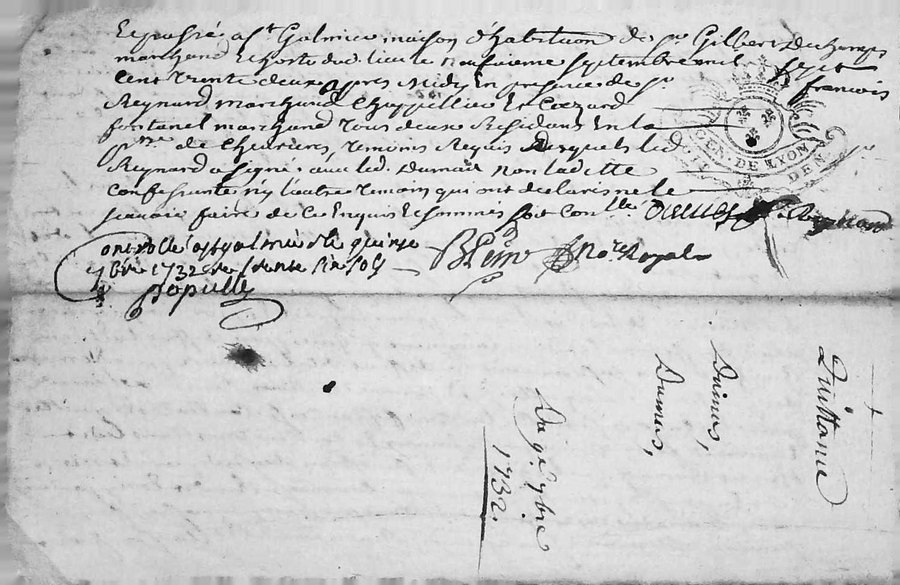 et passé a St Galmier maison d'habitaon de Sr Gilbert Deschamps
marchand et hoste dud. lieu le neufieme septembre mil sept
cent trente deux apres midy en presence de Sr francois
Reynard marchand Chappellier et
fontanel marchand tous deux Residans en la
psse de Chevrieres temoins Requis desquels led.
Reynard a signé avec led. Dumas non ladette
confessante ny l'autre temoin qui ont declaris ne le
scavoir faire de ce Enquis et sommés soit conlle Dumas Reynard
controllé a St galmier le quinze
7bre 1732 Reçu trente six sols
nore Royal
GEN. DE LYON
Quittance
Dumas,
Dumas,
Du 9e 7bre
1732.